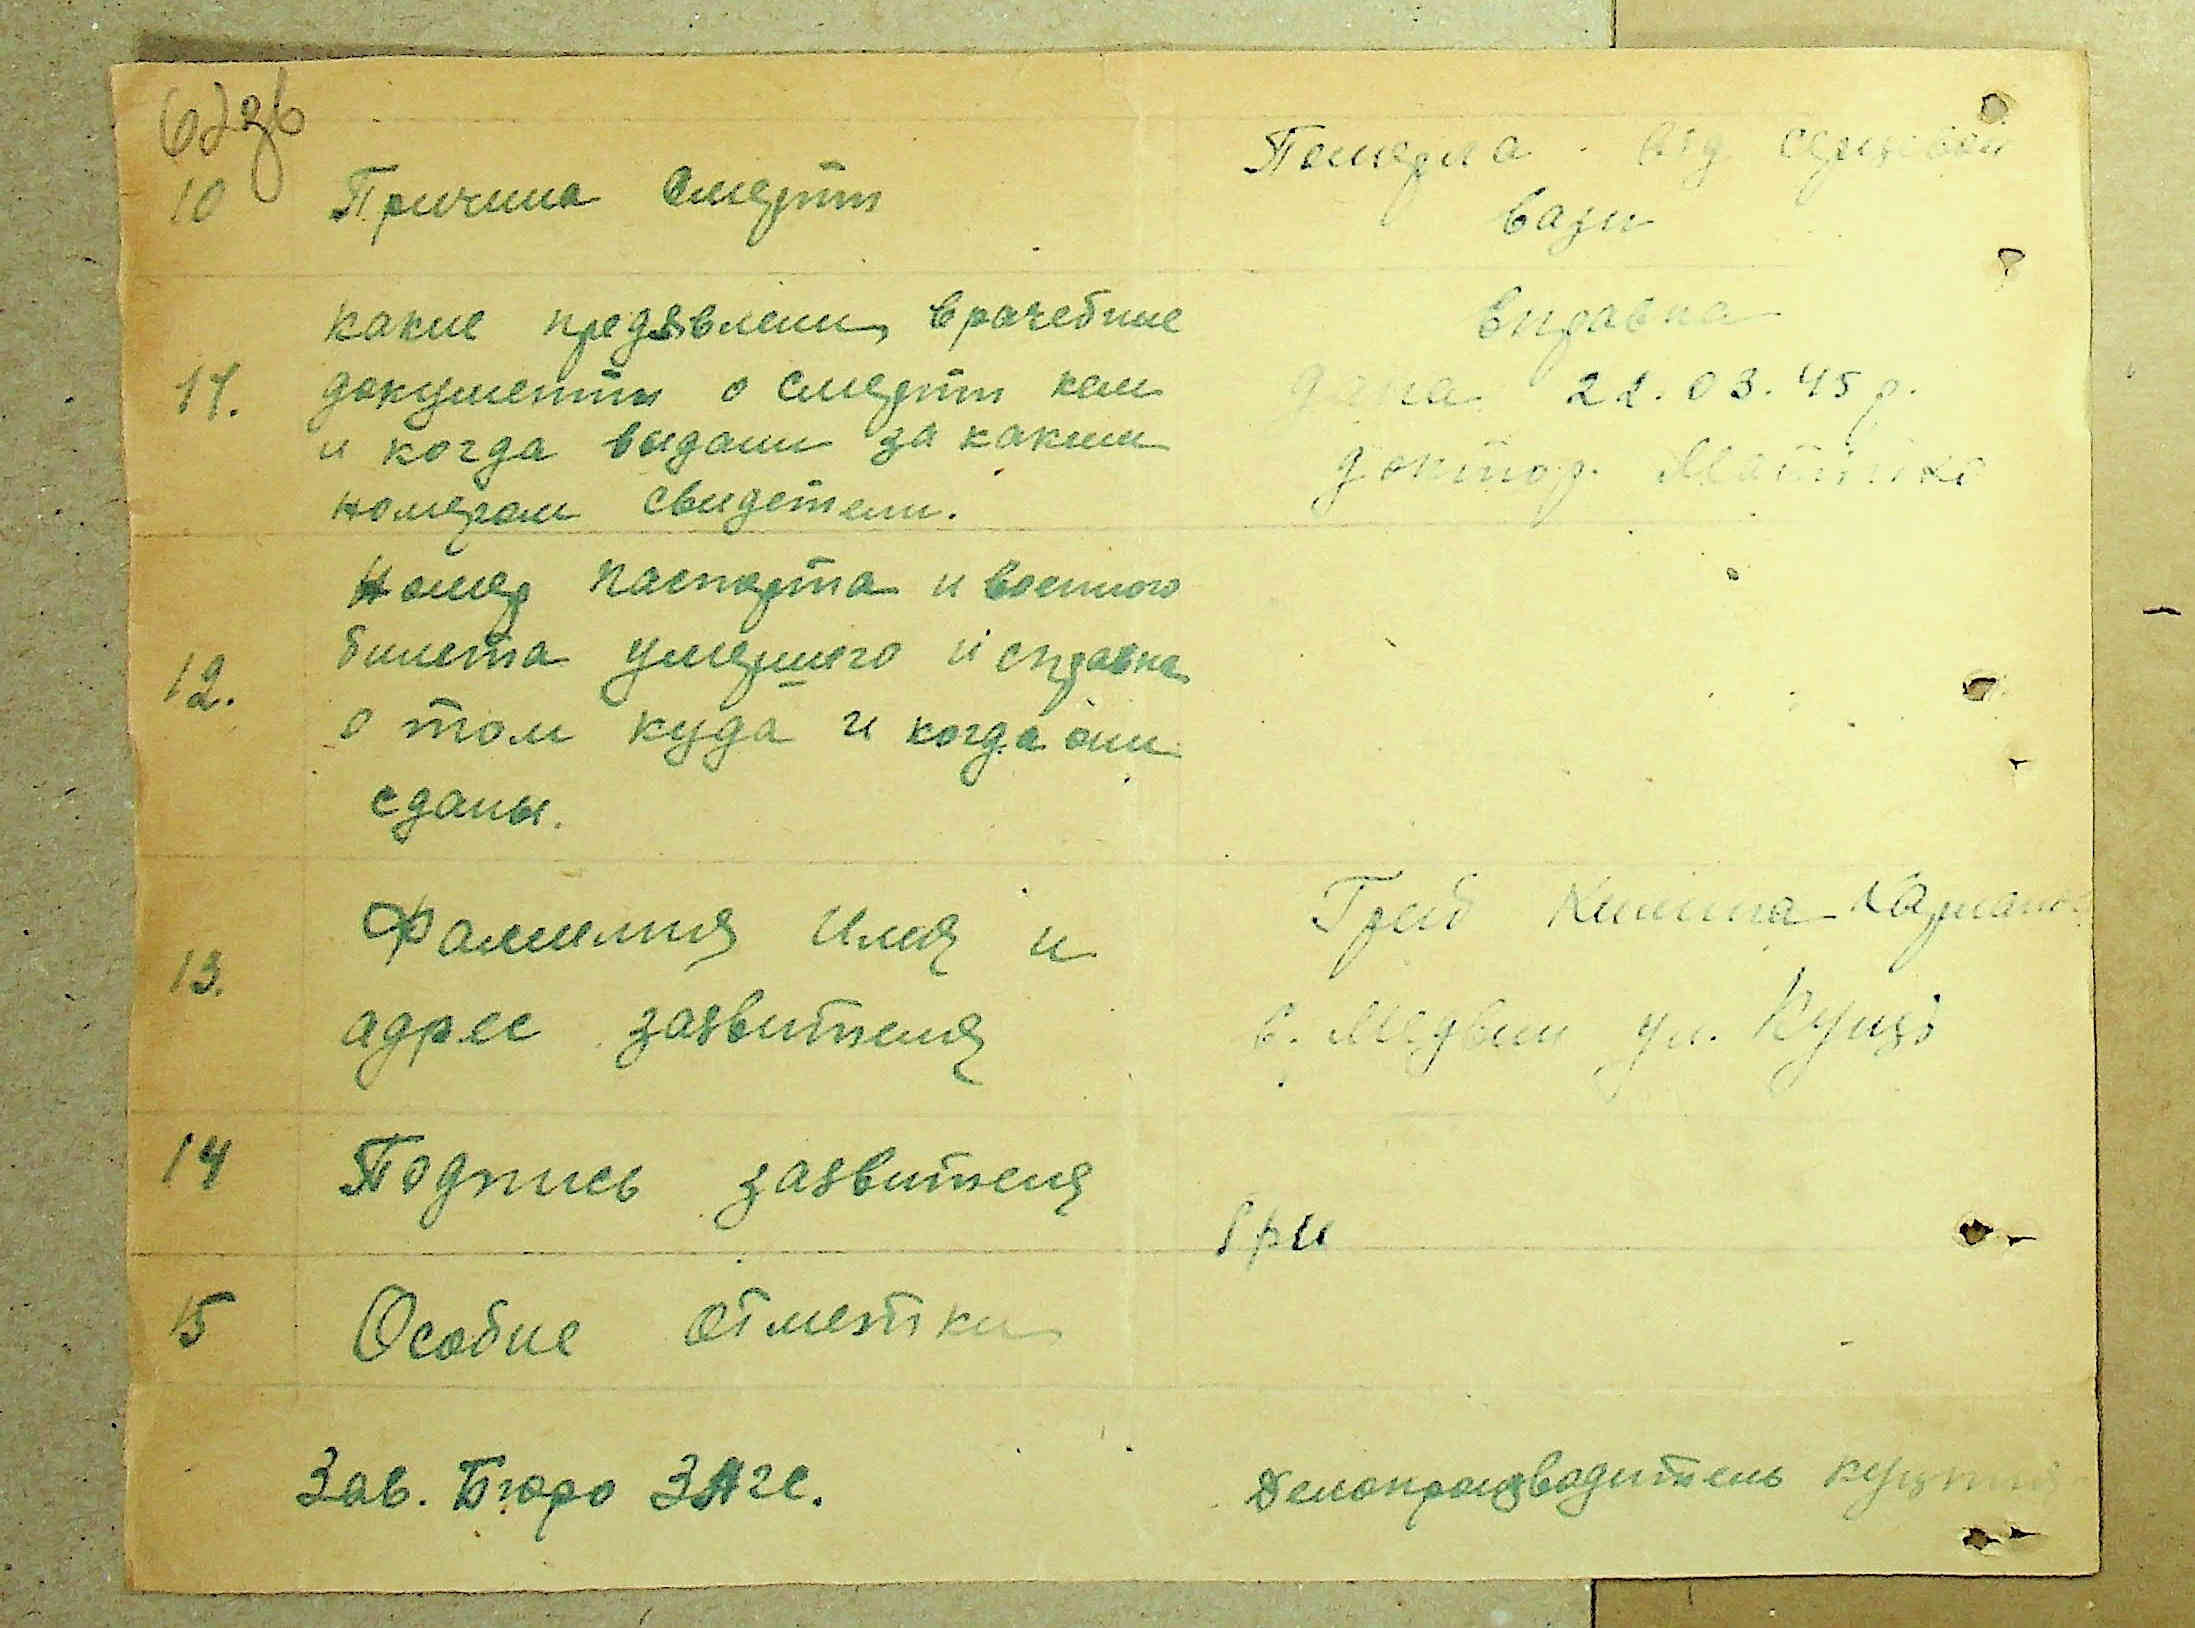 62зв
10 Причина смерти
Померла від серцевой
вади
11. какие предявлени врачебные
документы о смерти кем
и когда видани за каким
номером свидетели.
Справка
дана 22.03.45 р.
доктор.
12. Номер паспорта и военного
билета умершего и справка
о том куда и когда они
сданы.
13. Фамилия Имя и
адрес заявителя
Гриб
с. Медвин ул. Куції
14 Подпись заявителя
Гри
15 Особие отметки
Зав. Бюро ЗАГС.
Делопроизводитель